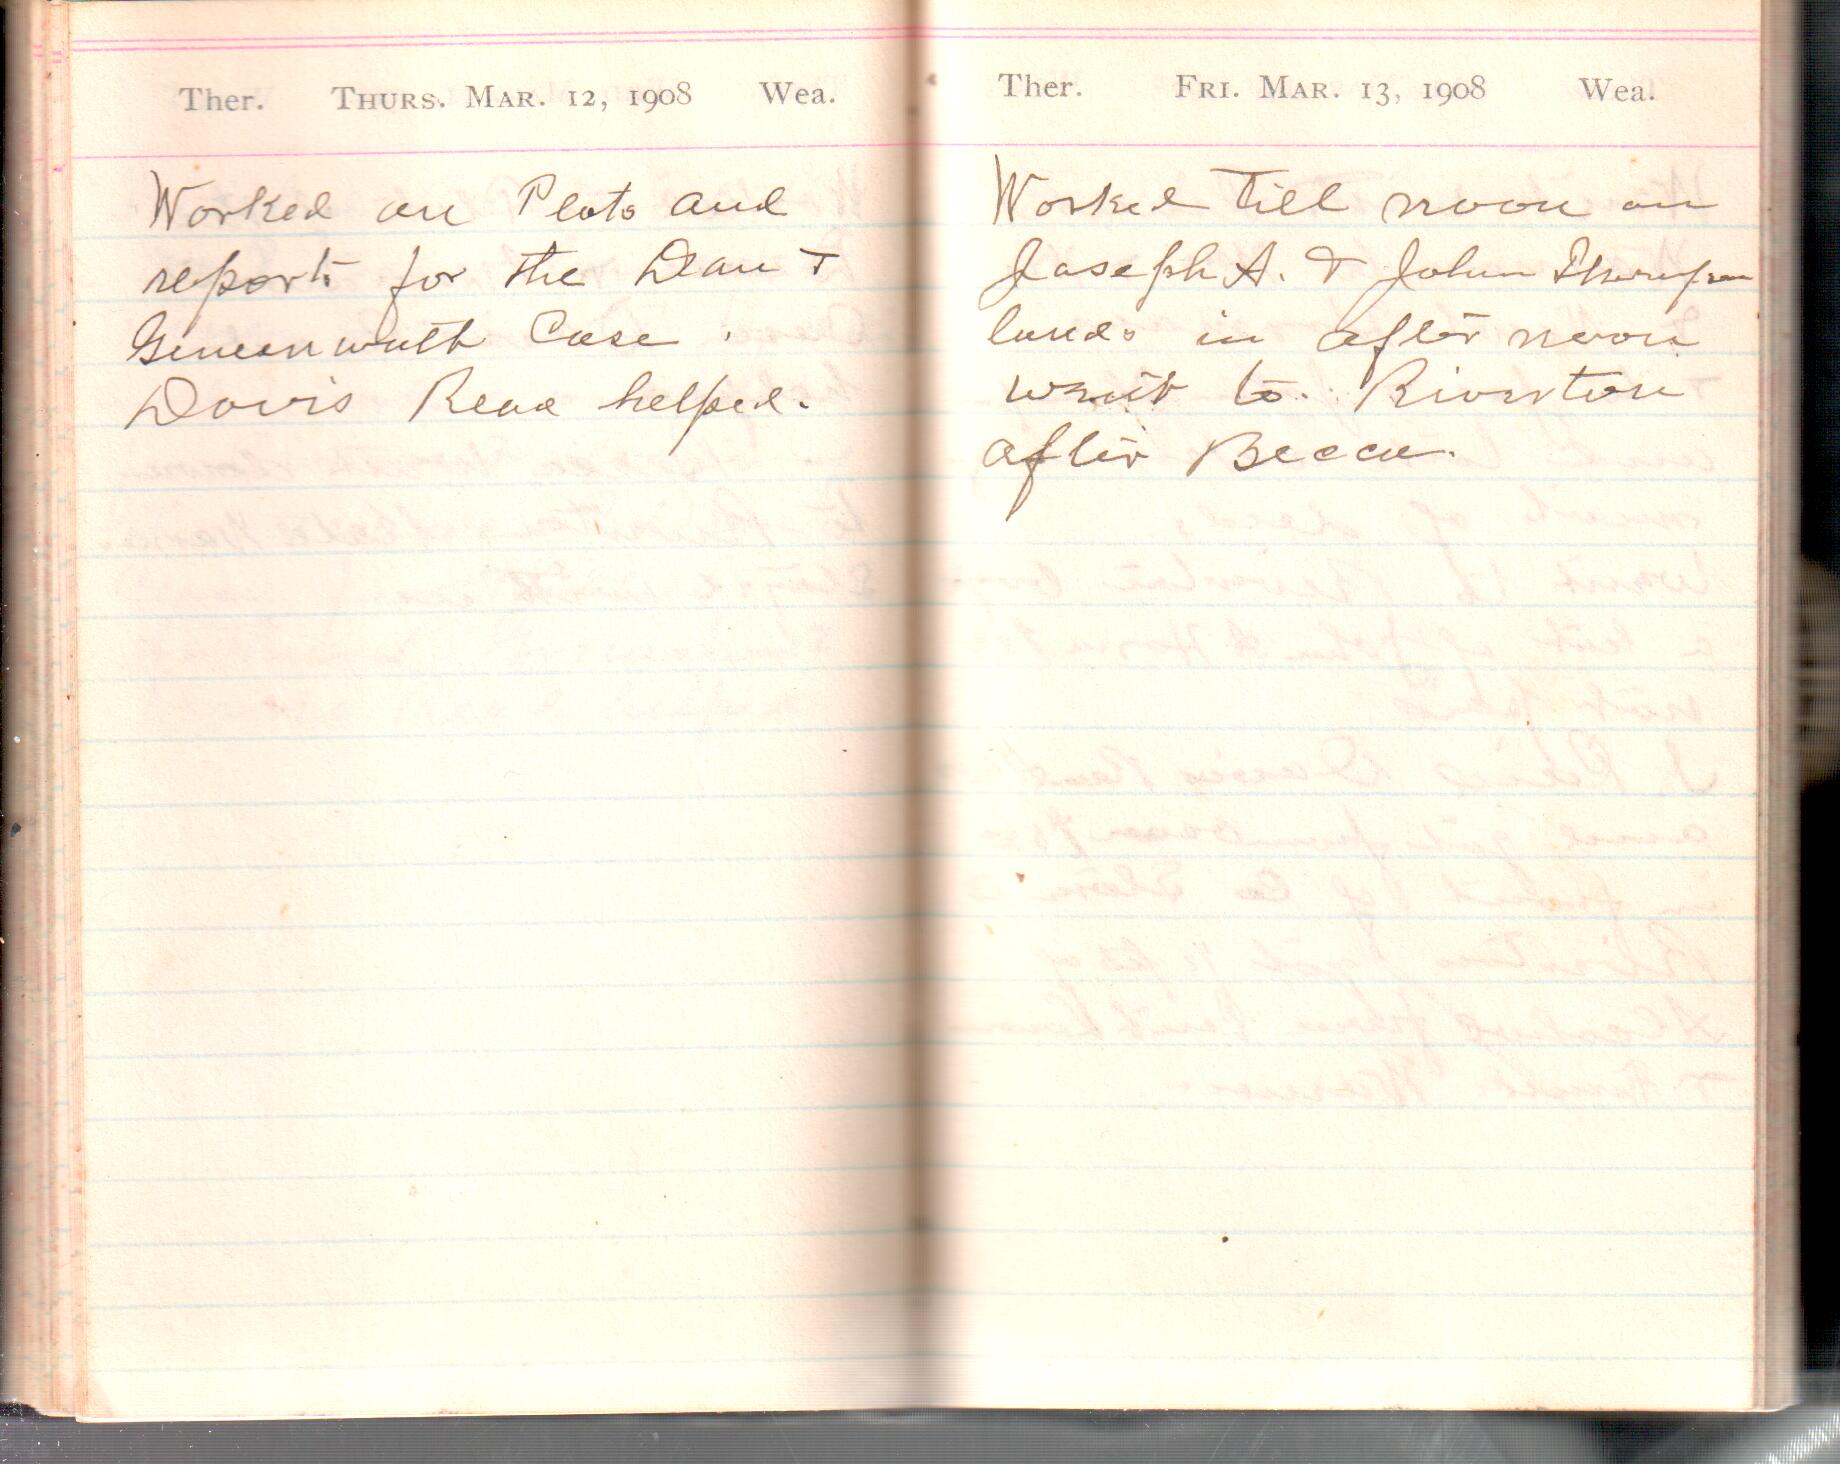 Ther. THURS. MAR. 12, 1908 Wea.
Worked on Plats and
reports for the Dan &
Case.
Davis Read helped.
Ther. FRI. MAR. 13, 1908 Wea.
Worked till noon on
Joseph A. & John Thompson
lands in after noon
went to Riverton
after Becca.